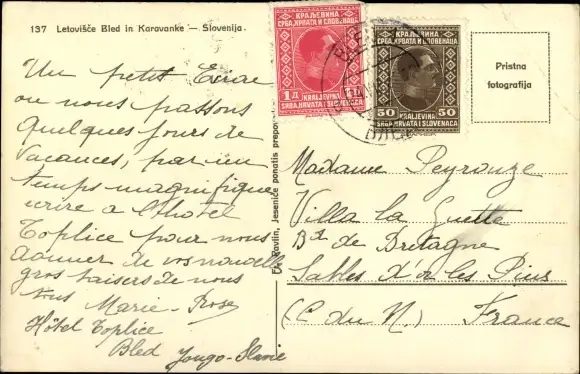 137 Letovišče Bled in Karavanke — Slovenija.
Un petit
où nous passons
quelques jours de
vacances, par un
temps magnifique
écrire à l'hotel
Toplice pour nous
donner de vos nouvelles
gros baisers de nous
tous Marie-Rose
Hôtel Toplice
Bled Yougo-Slavie
Fr. Pavlin, Jesenice ponatis prepov
КРАЉЕВИНА
СРБА, ХРВАТА И СЛОВЕНАЦА
1 Д
KRALJEVINA
SRBA, HRVATA I SLOVENACA
КРАЉЕВИНА
СРБА, ХРВАТА И СЛОВЕНАЦА
50 50
KRALJEVINA
SRBA, HRVATA I SLOVENACA
BLED
Pristna
fotografija
Madame Peyronze
Villa la Guette
Bd de Bretagne
Sables d'or les Pins
(C. du N.) France